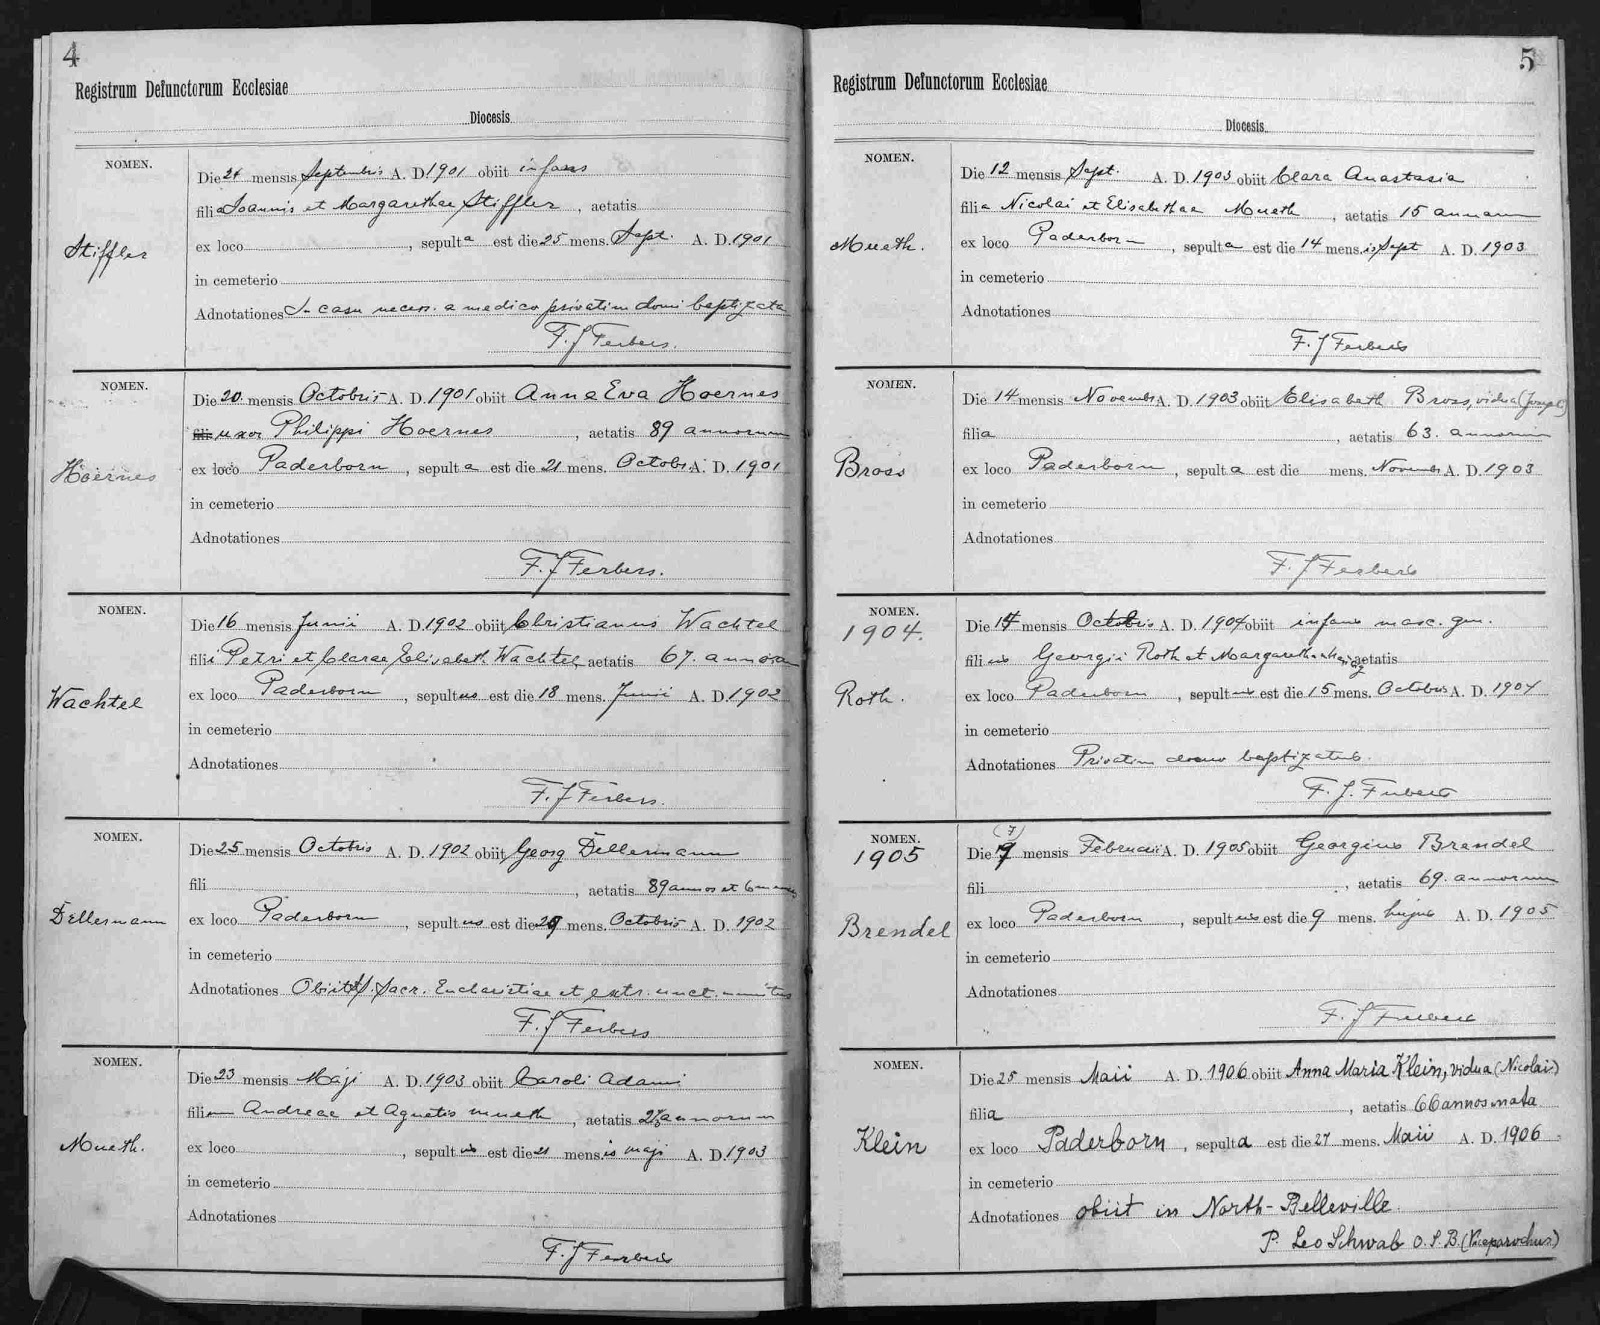 4
Registrum Defunctorum Ecclesiae
Diocesis
NOMEN.
Stiffler
Die 24 mensis Septembris A. D. 1901 obiit infans
filia Joannis et Margarethae Stiffler, aetatis
ex loco , sepulta est die 25 mens. Sept. A. D. 1901
in cemeterio
Adnotationes In casu necess. a medico privatim domi baptizata
F. J Ferbers.
NOMEN.
Hoernes
Die 20 mensis Octobris A. D. 1901 obiit Anna Eva Hoernes
fili uxor Philippi Hoernes , aetatis 89 annorum
ex loco Paderborn , sepulta est die 21 mens. Octobris A. D. 1901
in cemeterio
Adnotationes
F. J Ferbers.
NOMEN.
Wachtel
Die 16 mensis Junii A. D. 1902 obiit Christianus Wachtel
filii Petri et Clarae Elisabeth Wachtel aetatis 67. annorum
ex loco Paderborn , sepultus est die 18 mens. Junii A. D. 1902
in cemeterio
Adnotationes
F. J Ferbers.
NOMEN.
Dellermann
Die 25 mensis Octobris A. D. 1902 obiit Georg Dellermann
fili , aetatis 89 annos et 6
ex loco Paderborn , sepultus est die mens. Octobris A. D. 1902
in cemeterio
Adnotationes Obiit Sacr. Eucharistiae et extr. unct. munitus
F. J Ferbers
NOMEN.
Mueth.
Die 23 mensis Maji A. D. 1903 obiit Caroli Adami
filium Andreae et Agnetis Mueth , aetatis annorum
ex loco , sepultus est die 21 mensis maji A. D. 1903
in cemeterio
Adnotationes
F. J Ferbers
5
Registrum Defunctorum Ecclesiae
Diocesis
NOMEN.
Mueth.
Die 12 mensis Sept. A. D. 1903 obiit Clara Anastasia
filia Nicolai et Elisabethae Mueth , aetatis 15 annorum
ex loco Paderborn , sepulta est die 14 mens. is Sept A. D. 1903
in cemeterio
Adnotationes
F. J Ferbers
NOMEN.
Bross
Die 14 mensis Novembris A. D. 1903 obiit Elisabeth Bross, vidua (Josephi)
filia , aetatis 63. annorum
ex loco Paderborn , sepulta est die mens. Novembris A. D. 1903
in cemeterio
Adnotationes
F. J Ferbers
NOMEN.
1904.
Roth.
Die 14 mensis Octobris A. D. 1904 obiit infans masc. gen.
filius Georgii Roth et Margarethae aetatis
ex loco Paderborn , sepultus est die 15 mens. Octobris A. D. 1904
in cemeterio
Adnotationes Privatim domo baptizatus.
F. J. Ferbers
NOMEN.
1905
Brendel
(7)
Die mensis Februarii A. D. 1905 obiit Georgius Brendel
fili , aetatis 69. annorum
ex loco Paderborn , sepultus est die 9 mens. hujus A. D. 1905
in cemeterio
Adnotationes
F. J Ferbers
NOMEN.
Klein
Die 25 mensis Maii A. D. 1906 obiit Anna Maria Klein, vidua (Nicolai)
filia , aetatis 66 annos nata
ex loco Paderborn , sepulta est die 27 mens. Maii A. D. 1906
in cemeterio
Adnotationes obiit in North-Belleville
P. Leo Schwab O. S. B. (Viceparochus)